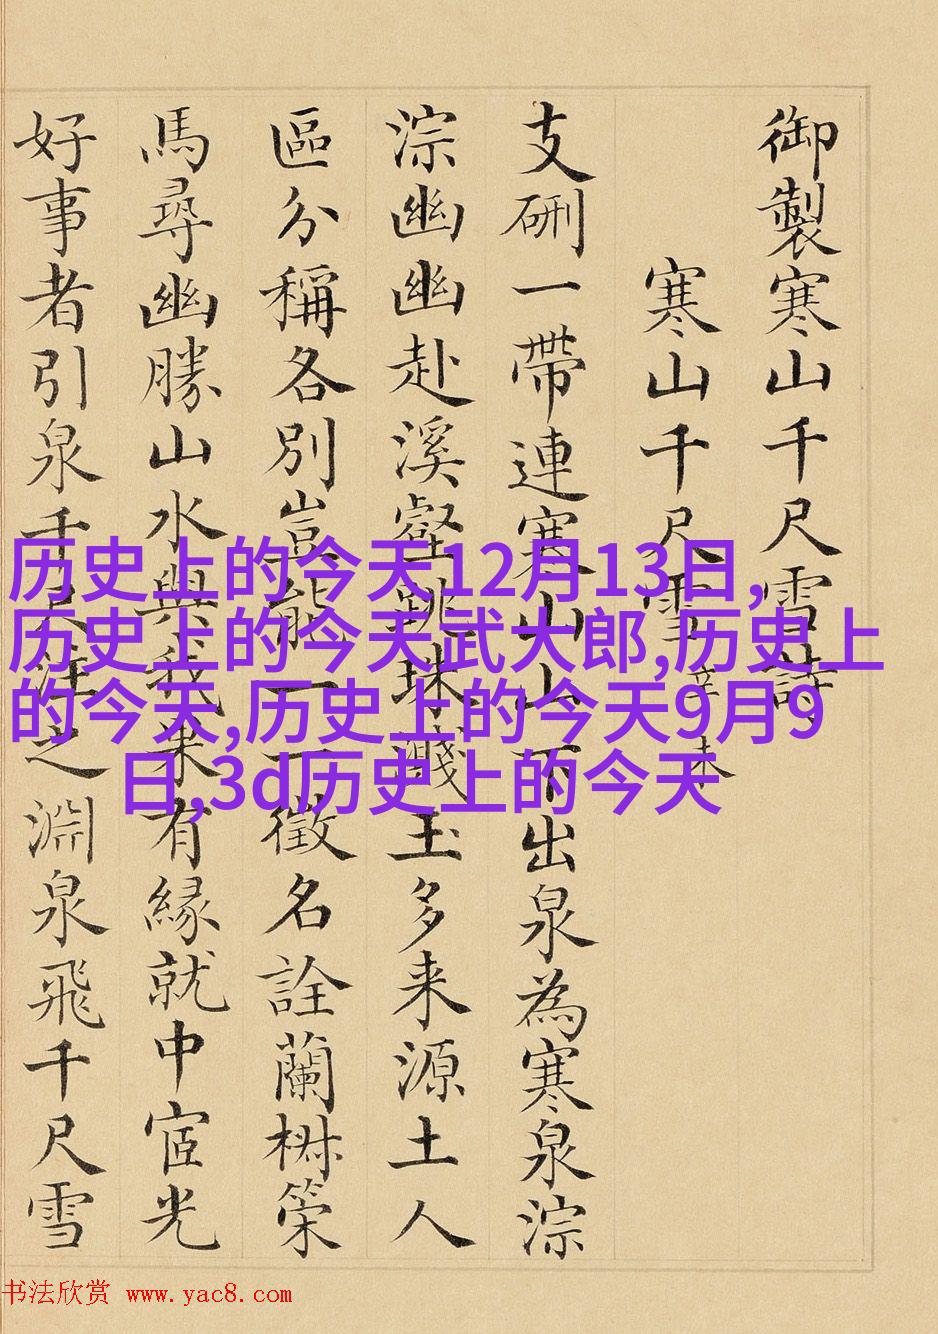 御製寒山千尺雪詩
寒山千尺雪 辛未
支硎一帶連寒山山下出泉為寒泉淙
淙幽幽赴溪壑跳珠濺玉多來源土人
區分稱各別豈能一一徵名詮蘭椒策
馬尋幽勝山水與我果有緣就中宧光
好事者引泉千尺注之淵泉飛千尺雪
历史上的今天12月13日,
历史上的今天武大郎,历史上
的今天,历史上的今天9月9
日,3d历史上的今天
书法欣赏 www.yac8.com